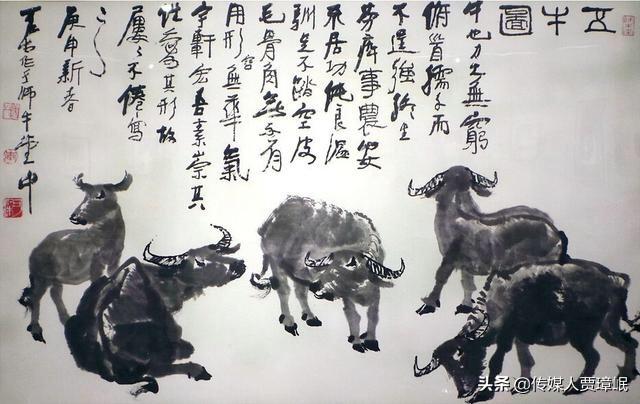 五牛圖
牛也力大無窮
俯首孺子而
不逞強終生
勞瘁事農安
不居功純良溫
馴足不踏空皮
毛骨角無不有
用形容無華氣
宇軒宏吾素崇其
性愛其形故
屢々不倦寫
之
庚申新春
可染作于師牛堂中
头条 @传媒人贾璋岷